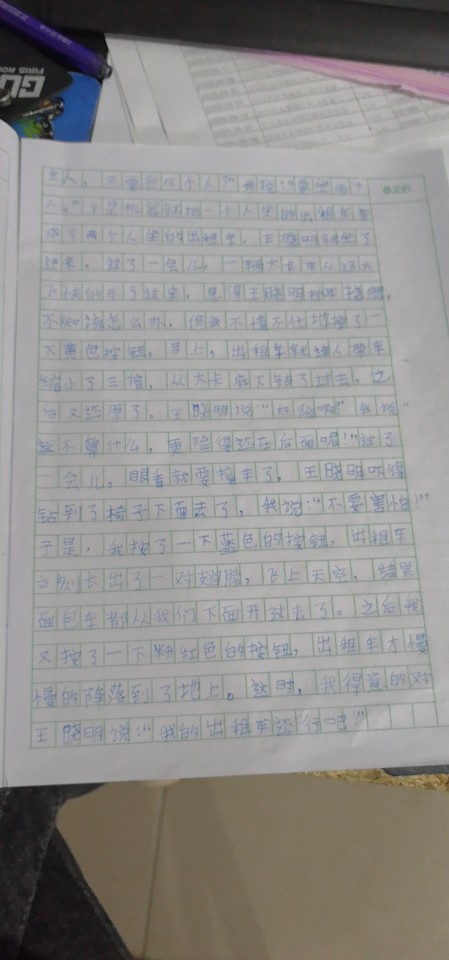 GU
人。又要坐几个人？”我按：“要坐两个
人。”于是机器就把一个人坐的出租车变
成了两个人坐的出租车，王晓明就坐了
进来。过了一会儿，一辆大卡车从
飞快的开了过来，急得王晓明
不知该怎么办，但我不慌不忙地按了一
下黄色按钮。马上，出租车和人带车
缩小了三倍，从大卡底下钻了过去。之
后又还原了。王晓明说：“好险啊！”我说“
这不算什么，更险得还在后面呢！”过了
一会儿，眼看就要撞车了，王晓明
钻到了椅子下面去了，我说：“不要害怕！”
于是，我按了一下蓝色的按钮，出租车
立刻长出了一对翅膀，飞上天空，结果
面包车都从我们下面开过去了。之后我
又按了一下粉红色的按钮，出租车才慢
慢的降落到了地上。这时，我得意的对
王晓明说：“我的出租车还行吧！”